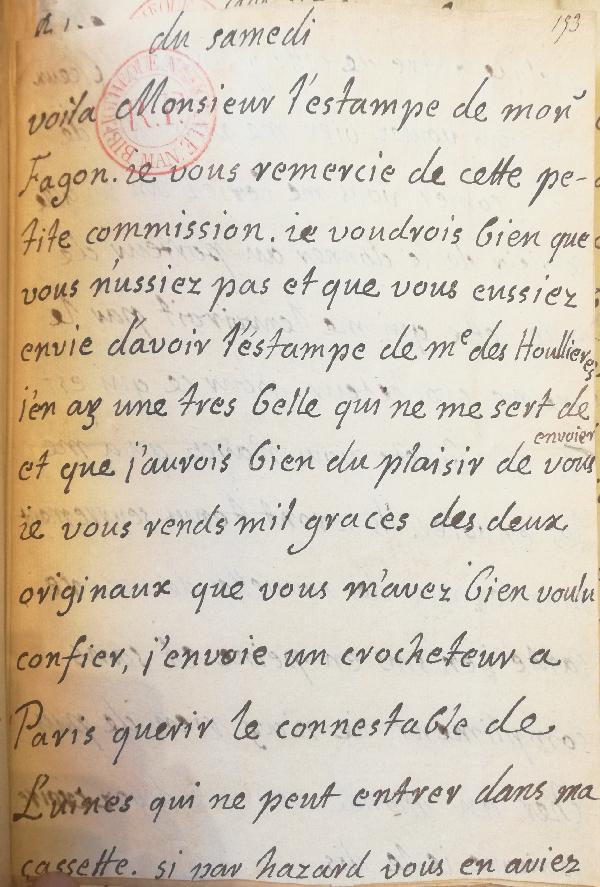 R 1.
153
du samedi
voila Monsieur l'estampe de mon^r
Fagon. ie vous remercie de cette pe-
tite commission. ie voudrois bien que
vous n'ussiez pas et que vous eussiez
envie d'avoir l'estampe de m^e des Houllieres
j'en ay une tres belle qui ne me sert de
envoier
et que j'aurois bien du plaisir de vous
ie vous rends mil graces des deux
originaux que vous m'avez bien voulu
confier, j'envoie un crocheteur a
Paris querir le connestable de
Luines qui ne peut entrer dans ma
cassette. si par hazard vous en aviez